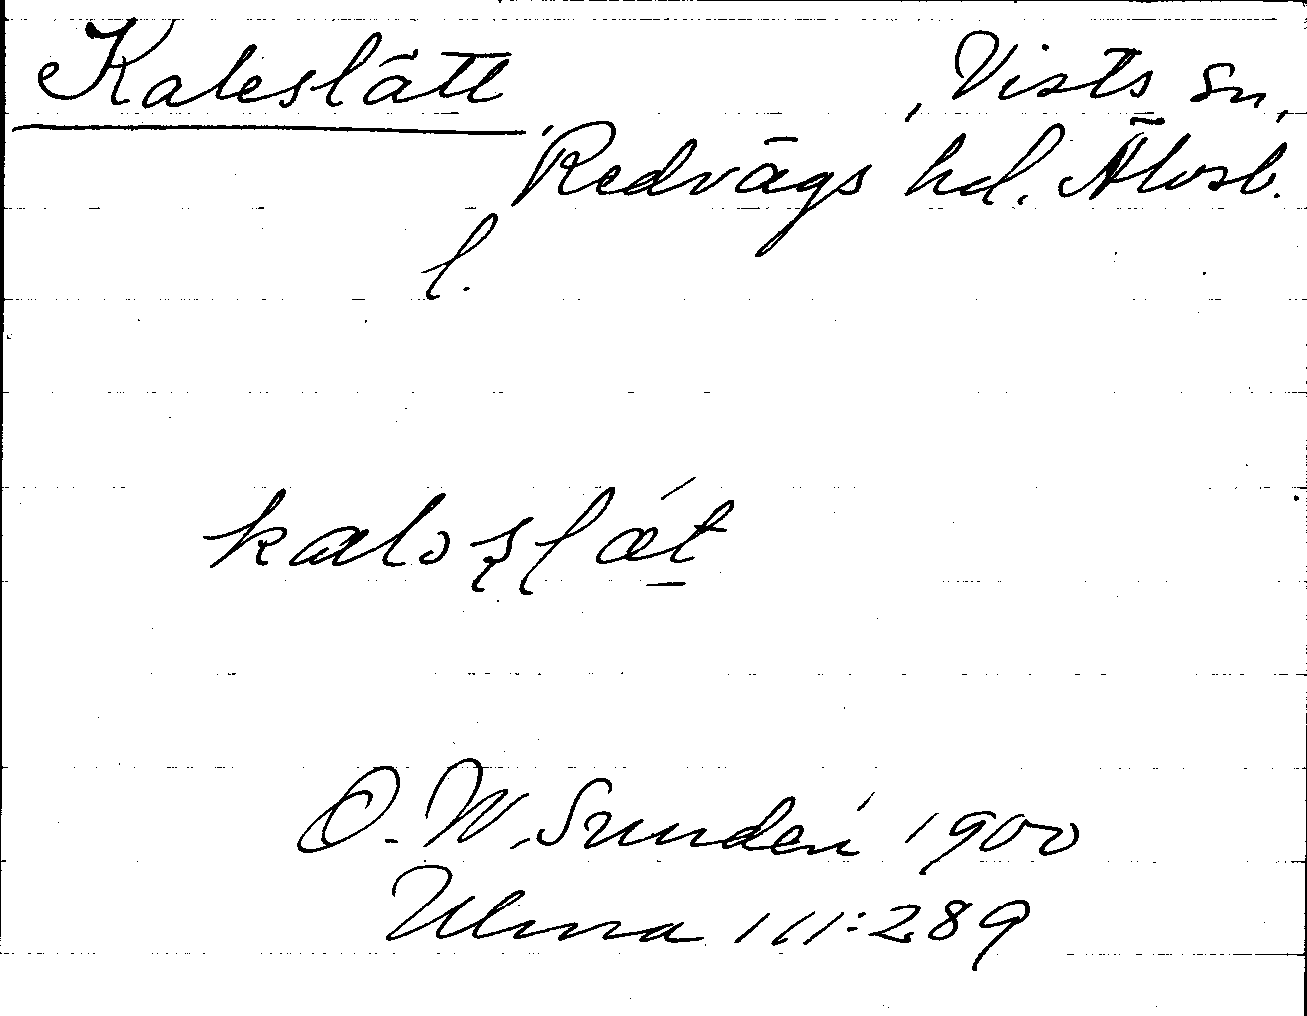 Kaleslätt, Vists sn,
Redvägs hd. Älvsb.
l.
kaləslǽt
O. W. Sundén 1900
Ulma 111:289